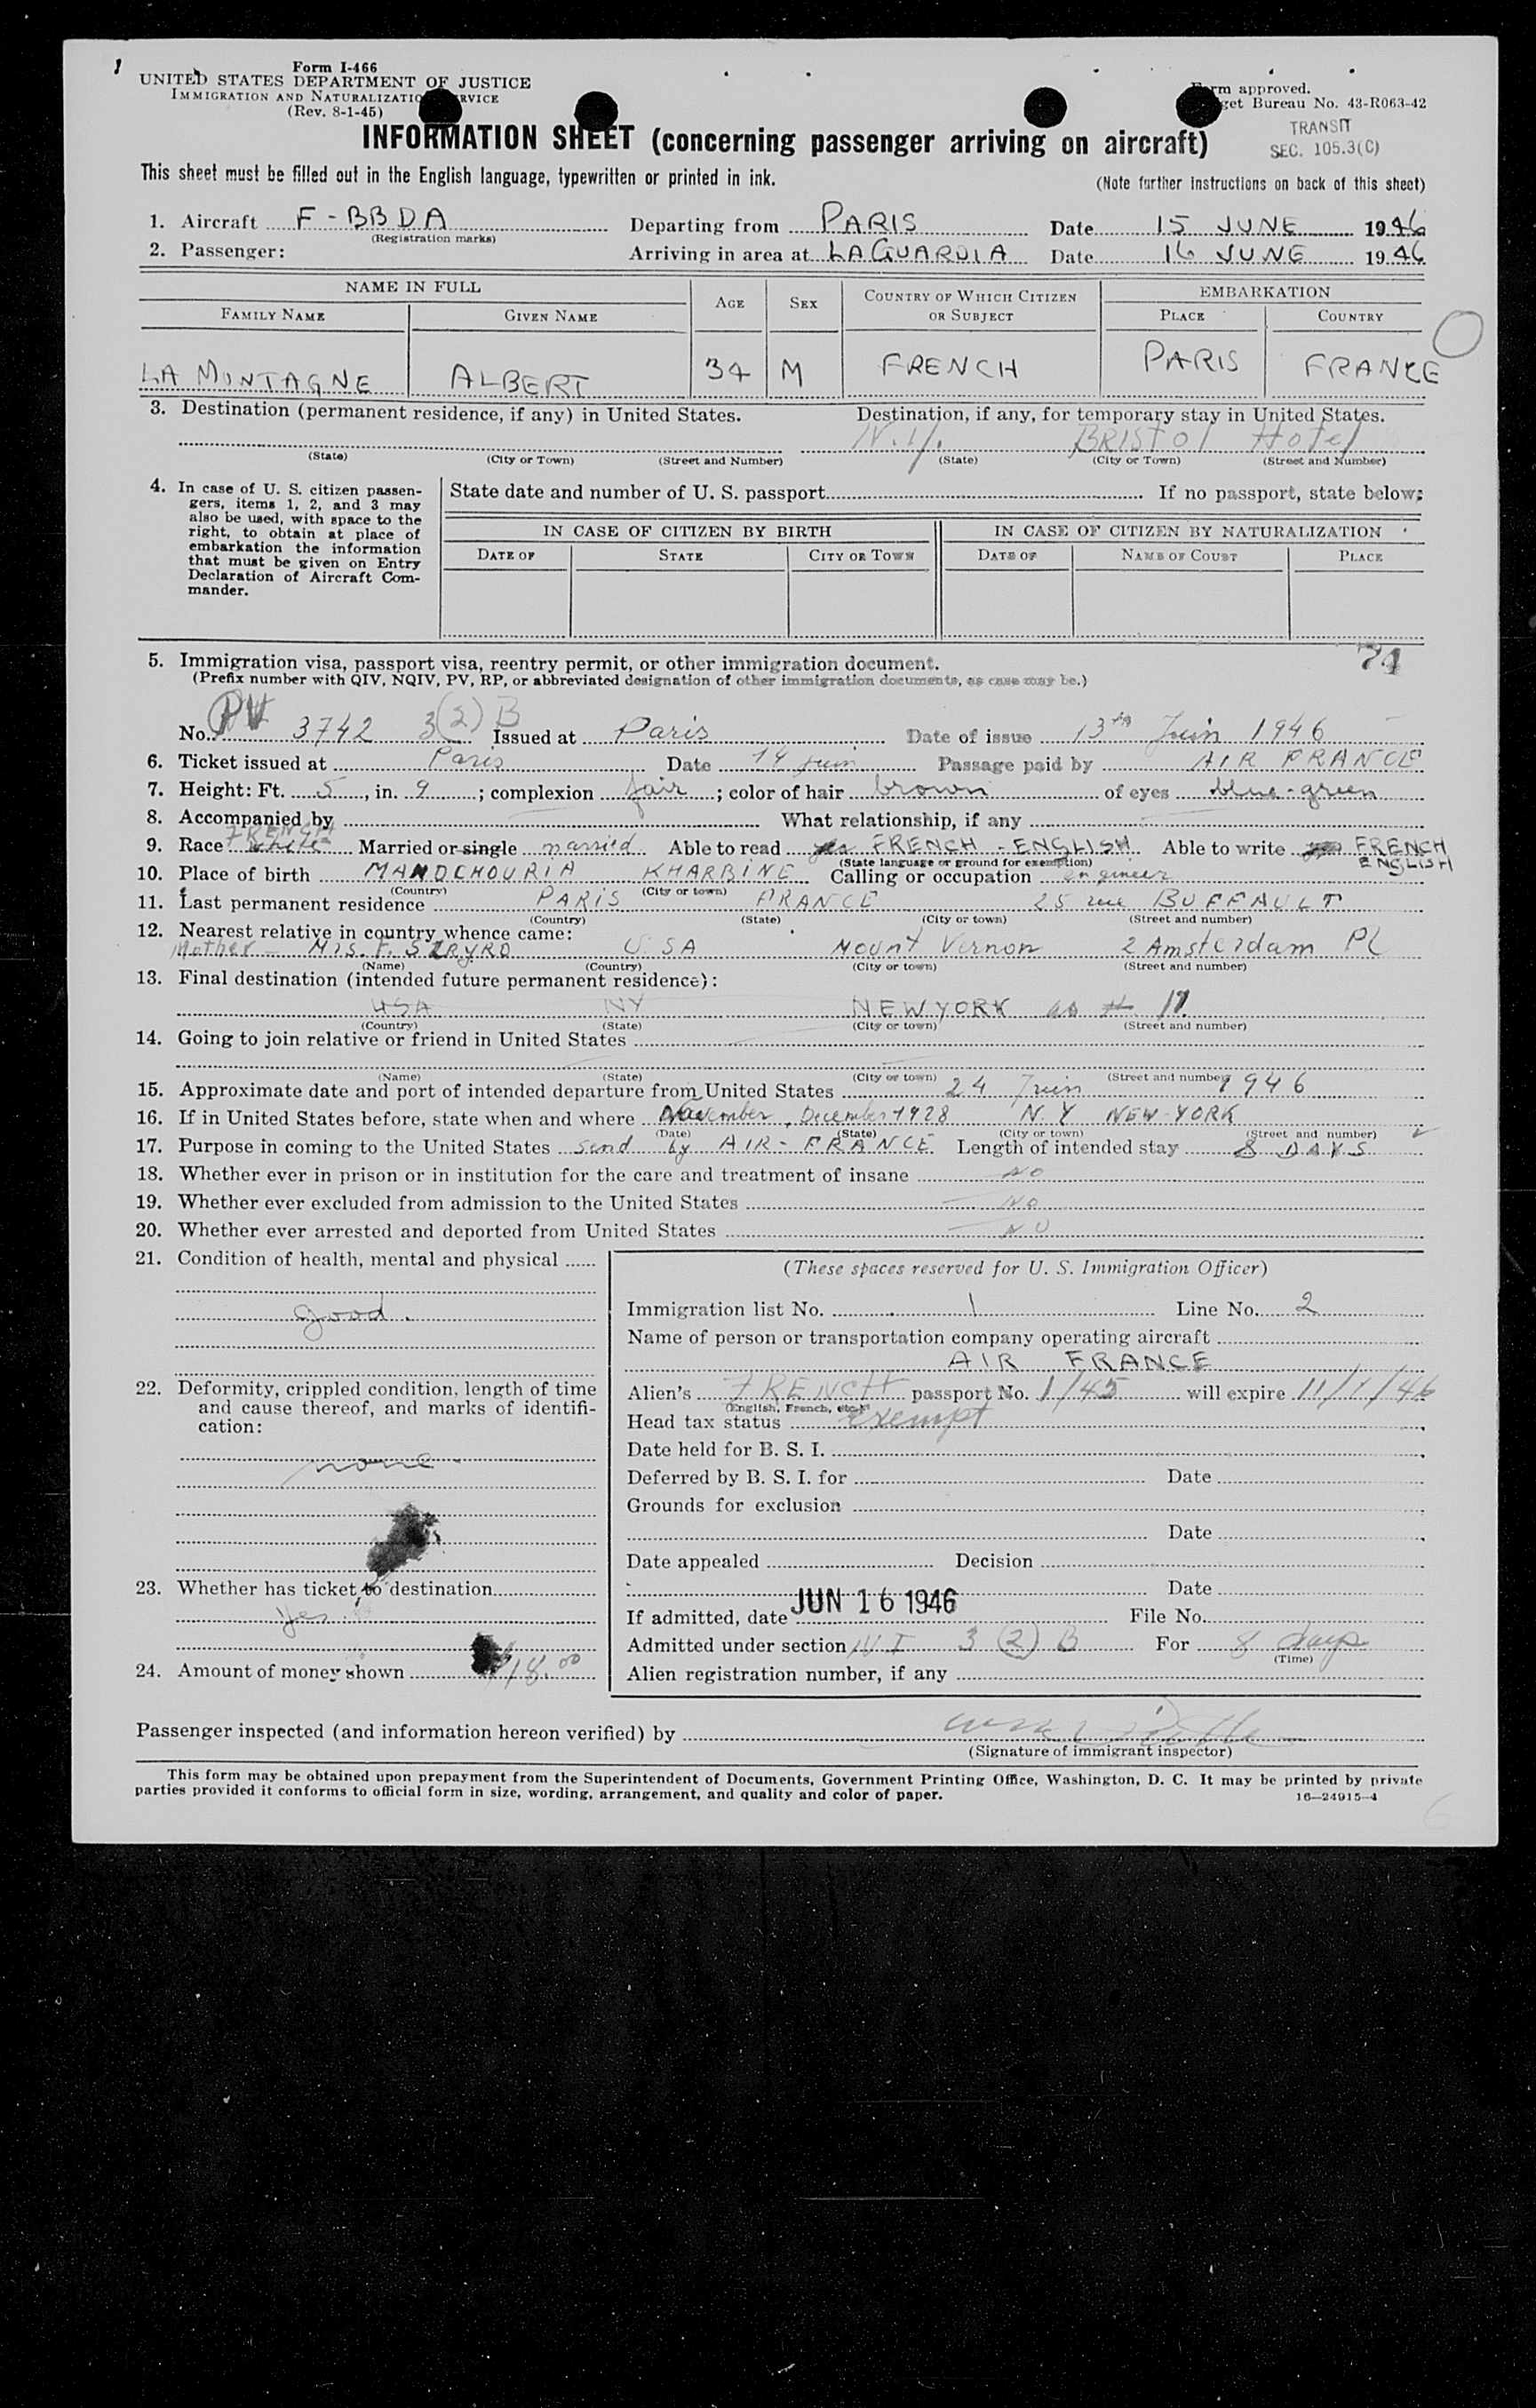 1
Form I-466
UNITED STATES DEPARTMENT OF JUSTICE
IMMIGRATION AND NATURALIZATION SERVICE
(Rev. 8-1-45)
Form approved.
Budget Bureau No. 43-R063-42
TRANSIT
SEC. 105.3(C)
INFORMATION SHEET (concerning passenger arriving on aircraft)
This sheet must be filled out in the English language, typewritten or printed in ink. (Note further instructions on back of this sheet)
1. Aircraft F-BBDA Departing from PARIS Date 15 JUNE 1946
(Registration marks)
2. Passenger: Arriving in area at LA GUARDIA Date 16 JUNE 1946
NAME IN FULL AGE SEX COUNTRY OF WHICH CITIZEN OR SUBJECT EMBARKATION
FAMILY NAME GIVEN NAME PLACE COUNTRY
LA MONTAGNE ALBERT 34 M FRENCH PARIS FRANCE
3. Destination (permanent residence, if any) in United States. Destination, if any, for temporary stay in United States.
N.Y. BRISTOl Hotel
(State) (City or Town) (Street and Number) (State) (City or Town) (Street and Number)
4. In case of U. S. citizen passengers, items 1, 2, and 3 may also be used, with space to the right, to obtain at place of embarkation the information that must be given on Entry Declaration of Aircraft Commander.
State date and number of U. S. passport If no passport, state below:
IN CASE OF CITIZEN BY BIRTH IN CASE OF CITIZEN BY NATURALIZATION
DATE OF STATE CITY OR TOWN DATE OF NAME OF COURT PLACE
74
5. Immigration visa, passport visa, reentry permit, or other immigration document.
(Prefix number with QIV, NQIV, PV, RP, or abbreviated designation of other immigration documents, as case may be.)
No. PV 3742 3(2)B Issued at Paris Date of issue 13th Juin 1946
6. Ticket issued at Paris Date 14 juin Passage paid by AIR FRANCE
7. Height: Ft. 5, in. 9; complexion fair; color of hair brown of eyes blue-green
8. Accompanied by What relationship, if any
FRENCH
9. Race white Married or single married Able to read yes FRENCH - ENGLISH Able to write yes FRENCH ENGLISH
(State language or ground for exemption)
10. Place of birth MANDCHOURIA KHARBINE Calling or occupation engineer
(Country) (City or town)
11. Last permanent residence PARIS FRANCE 25 rue BUFFAULT
(Country) (State) (City or town) (Street and number)
12. Nearest relative in country whence came:
Mother - Mrs. F. USA Mount Vernon 2 Amsterdam Pl
(Name) (Country) (City or town) (Street and number)
13. Final destination (intended future permanent residence):
USA NY NEW YORK
(Country) (State) (City or town) (Street and number)
14. Going to join relative or friend in United States
(Name) (State) (City or town) (Street and number)
15. Approximate date and port of intended departure from United States 24 Juin 1946
16. If in United States before, state when and where November, December 1928 N.Y NEW-YORK
(Date) (State) (City or town) (Street and number)
17. Purpose in coming to the United States send by AIR-FRANCE Length of intended stay 8 DAYS
18. Whether ever in prison or in institution for the care and treatment of insane NO
19. Whether ever excluded from admission to the United States NO
20. Whether ever arrested and deported from United States NO
21. Condition of health, mental and physical
good.
22. Deformity, crippled condition, length of time and cause thereof, and marks of identification:
none
23. Whether has ticket to destination
yes.
24. Amount of money shown 18.00
(These spaces reserved for U. S. Immigration Officer)
Immigration list No. 1 Line No. 2
Name of person or transportation company operating aircraft
AIR FRANCE
Alien's FRENCH passport No. 1/45 will expire 11/1/46
(English, French, etc.)
Head tax status exempt
Date held for B. S. I.
Deferred by B. S. I. for Date
Grounds for exclusion
Date
Date appealed Decision
Date
If admitted, date JUN 16 1946 File No.
Admitted under section 3 (2) B For 8 days
(Time)
Alien registration number, if any
Passenger inspected (and information hereon verified) by
(Signature of immigrant inspector)
This form may be obtained upon prepayment from the Superintendent of Documents, Government Printing Office, Washington, D. C. It may be printed by private
parties provided it conforms to official form in size, wording, arrangement, and quality and color of paper. 16—24915-4
6